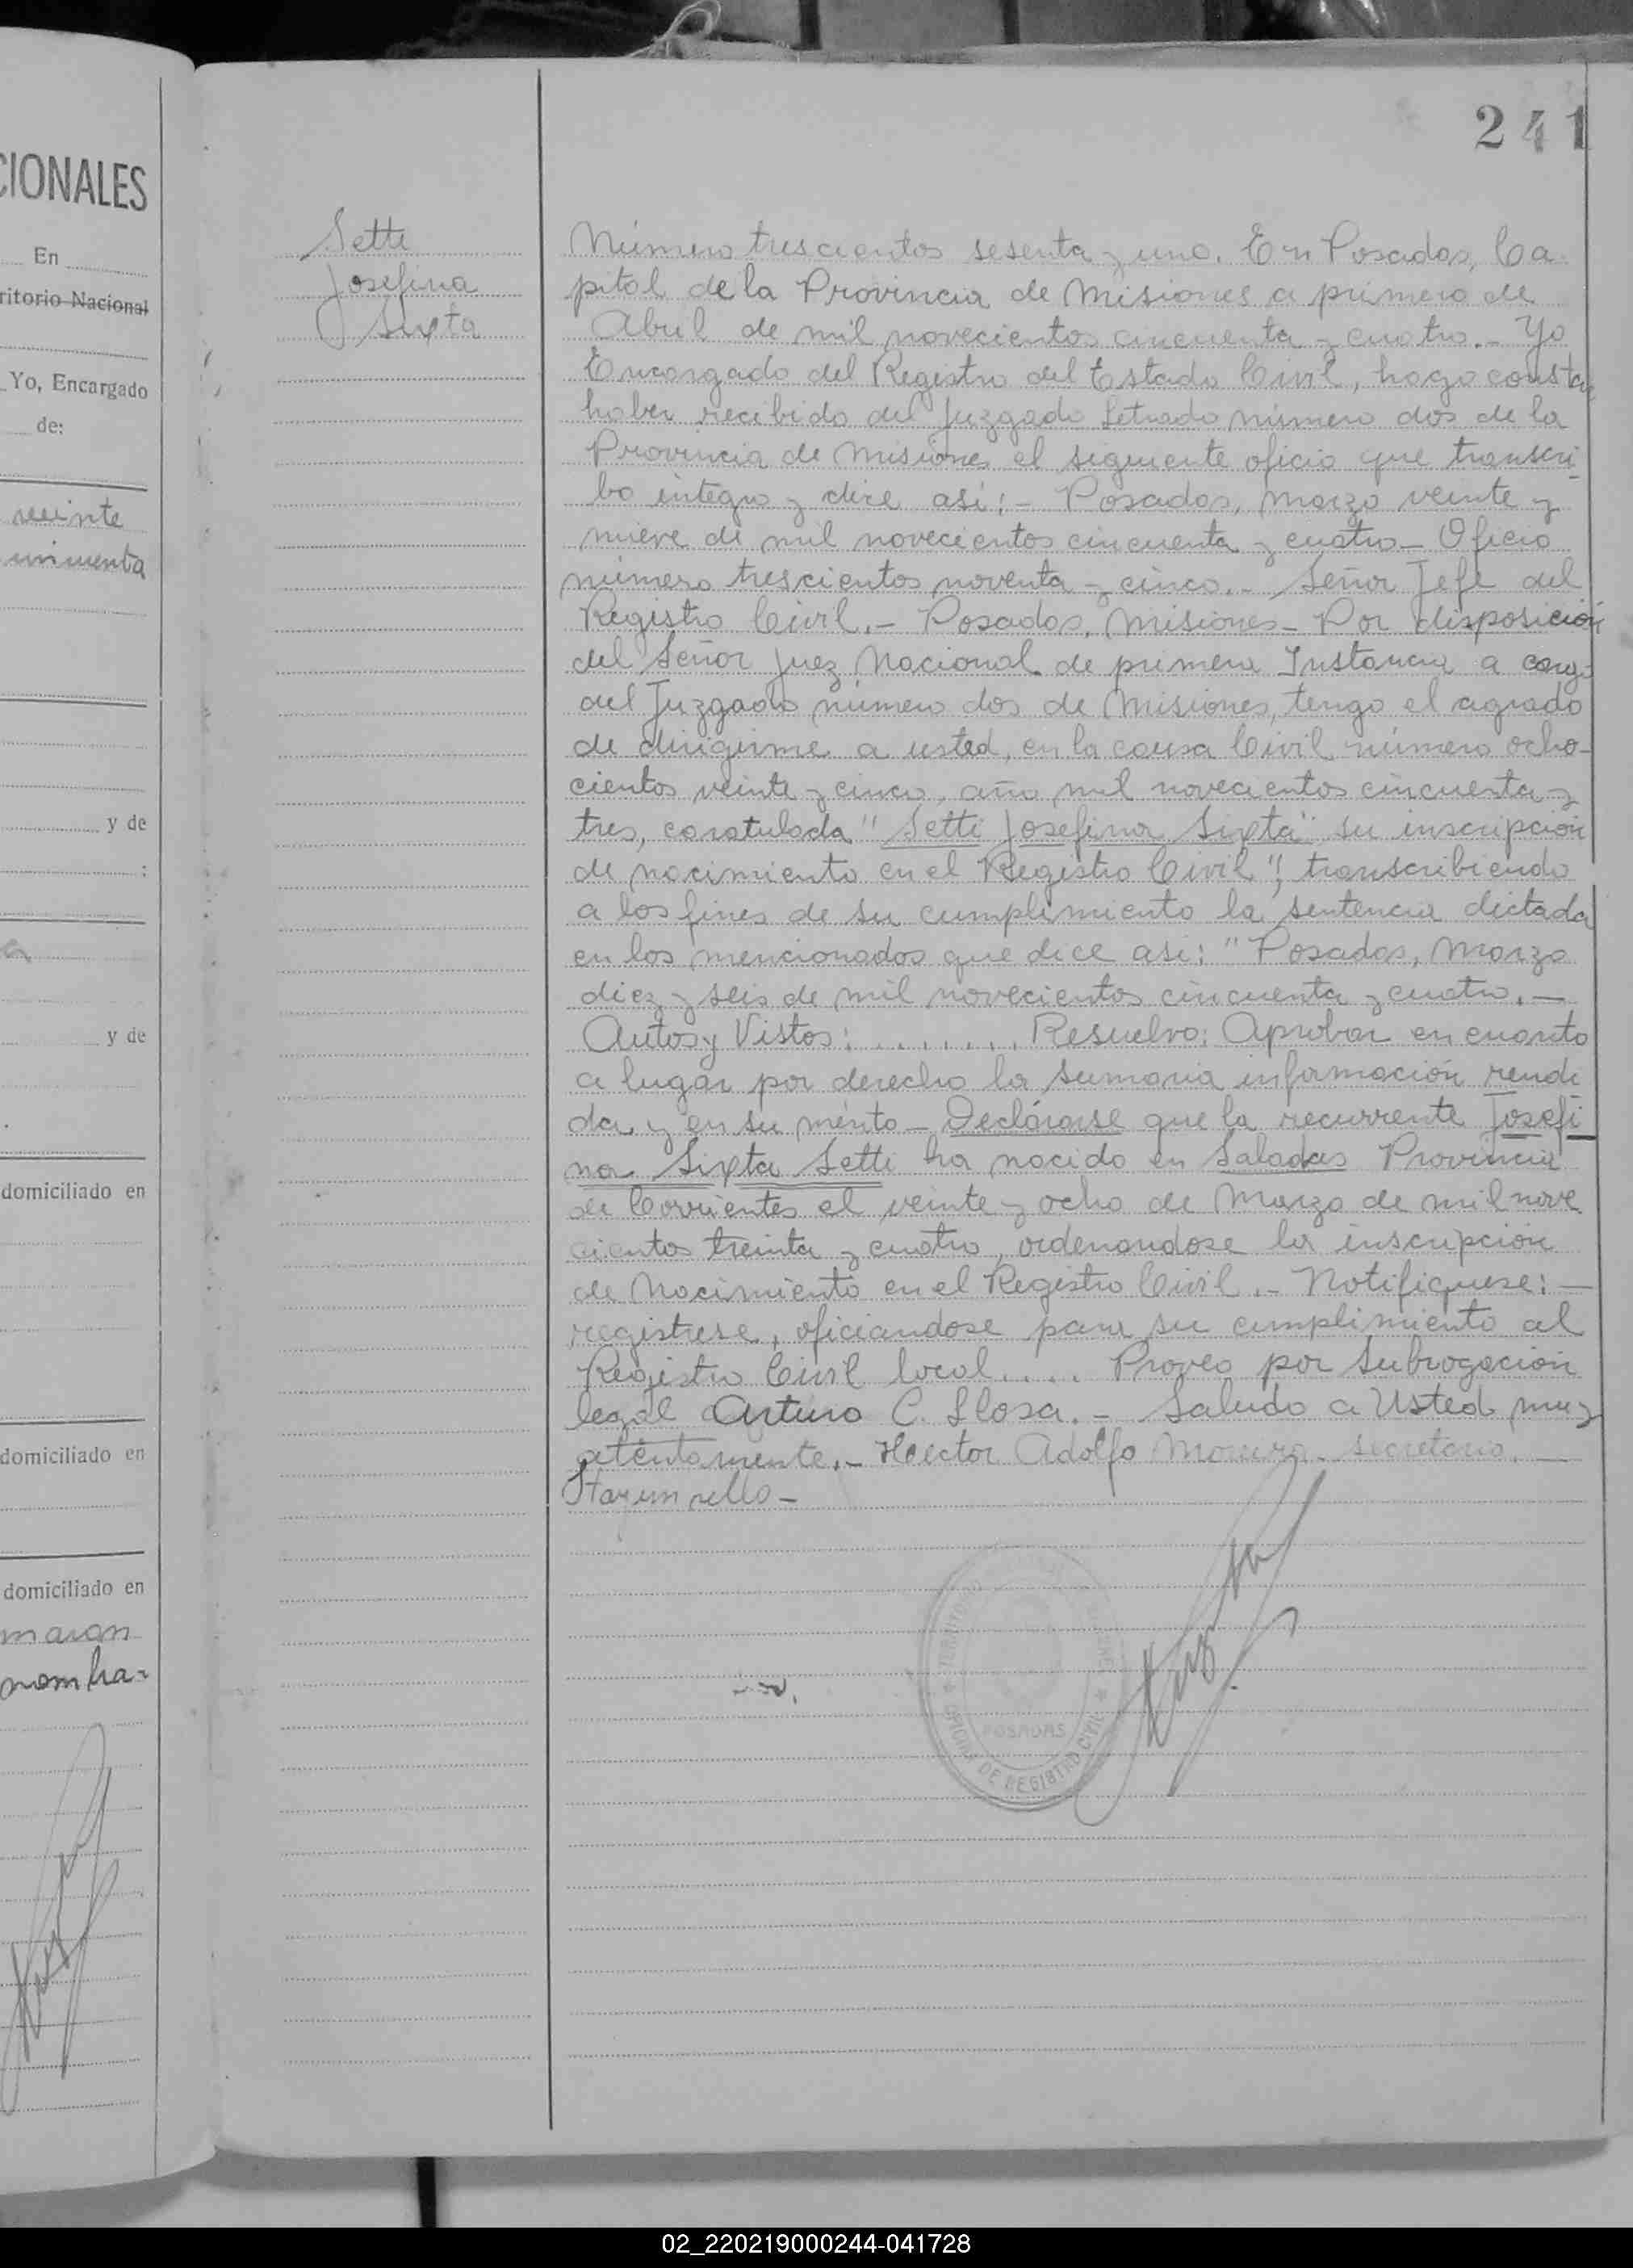 CIONALES
En
ritorio Nacional
Yo, Encargado
de:
veinte
y de
:
y de
domiciliado en
domiciliado en
domiciliado en
nombra=
241
Setti
Josefina
Sixta
Número trescientos sesenta y uno. En Posadas, Ca
pital de la Provincia de Misiones a primero de
Abril de mil novecientos cincuenta y cuatro.- Yo
Encargado del Registro del Estado Civil, hago constar
haber recibido del Juzgado Letrado número dos de la
Provincia de Misiones el siguiente oficio que transcri-
bo integro y dice asi:- Posadas, Marzo veinte y
nueve de mil novecientos cincuenta y cuatro- Oficio
número trescientos noventa y cinco.- Señor Jefe del
Registro Civil.- Posadas, Misiones- Por disposición
del Señor Juez Nacional de primera Instancia a cargo
del Juzgado número dos de Misiones, tengo el agrado
de dirigirme a usted, en la causa Civil número ocho-
cientos veinte y cinco, año mil novecientos cincuenta y
tres, caratulada "Setti Josefina Sixta" su inscripción
de nacimiento en el Registro Civil", transcribiendo
a los fines de su cumplimiento la sentencia dictada
en los mencionados que dice asi: "Posadas, Marzo
diez y seis de mil novecientos cincuenta y cuatro.-
Autos y Vistos: ........ Resuelvo: Aprobar en cuanto
a lugar por derecho la sumaria información rendi
da y en su mérito- Declárase que la recurrente Josefi-
na Sixta Setti ha nacido en Saladas Provincia
de Corrientes el veinte y ocho de Marzo de mil nove
cientos treinta y cuatro, ordenandose la inscripción
de Nacimiento en el Registro Civil.- Notifiquese:-
registrese, oficiandose para su cumplimiento al
Registro Civil local.... Proveo por Subrogación
legal Arturo C. Llosa.- Saludo a Usted muy
atentamente.- Hector Adolfo Moreira- secretario.-
Hay un sello-
TERRITORIO
POSADAS
OFICINA DE REGISTRO CIVIL
02_220219000244-041728